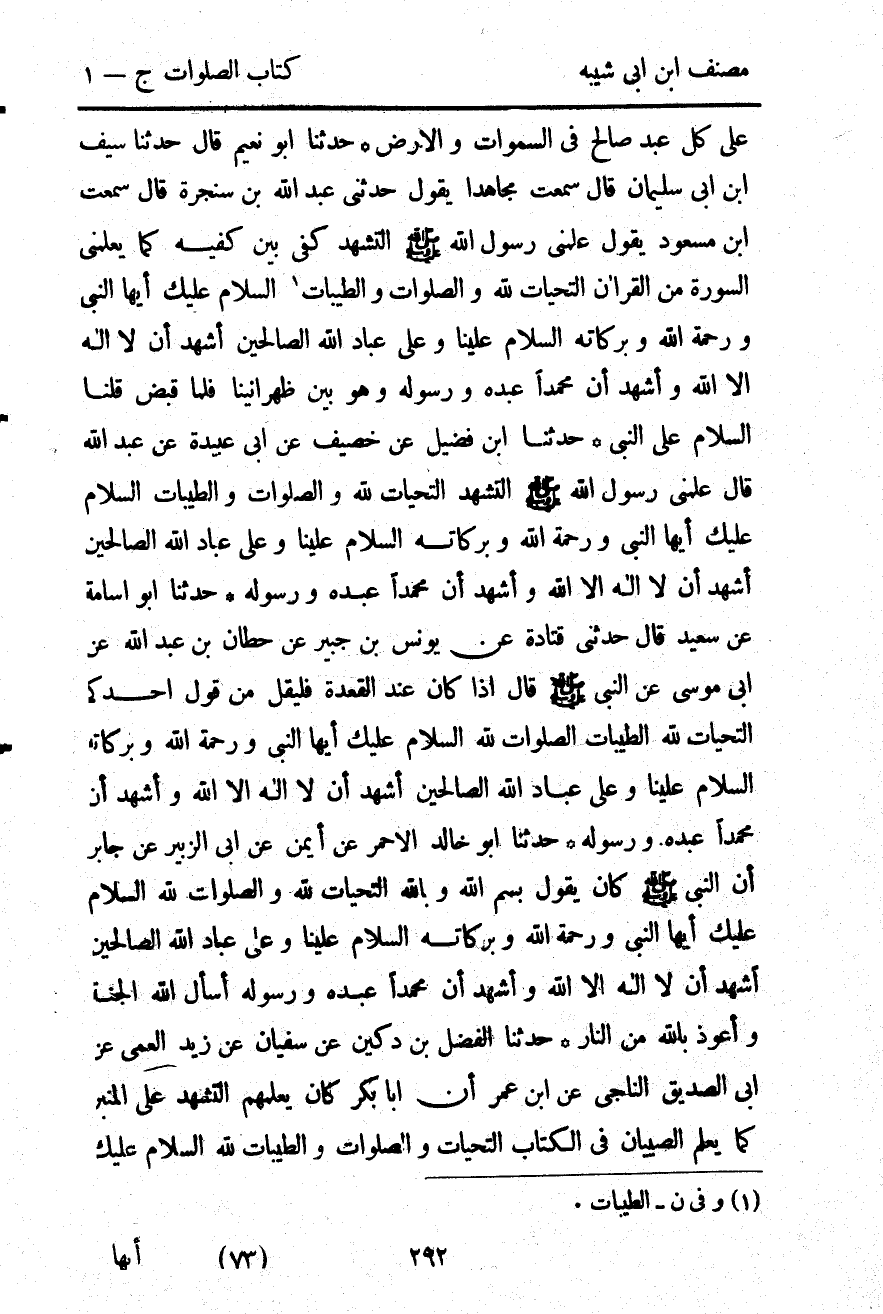 مصنف ابن ابى شيبه كتاب الصلوات ج — ١
على كل عبد صالح فى السموات و الارض * حدثنا ابو نعيم قال حدثنا سيف
ابن ابى سليمان قال سمعت مجاهدا يقول حدثنى عبد الله بن سنجرة قال سمعت
ابن مسعود يقول علمنى رسول الله ﷺ التشهد كفى بين كفيـــه كما يعلمنى
السورة من القرآن التحيات لله و الصلوات و الطيبات١ السلام عليك أيها النبى
و رحمة الله و بركاته السلام علينا و على عباد الله الصالحين أشهد أن لا اله
الا الله و أشهد أن محمداً عبده و رسوله و هو بين ظهرانينا فلما قبض قلنـا
السلام على النبى * حدثنــا ابن فضيل عن خصيف عن ابى عبيدة عن عبد الله
قال علمنى رسول الله ﷺ التشهد التحيات لله و الصلوات و الطيبات السلام
عليك أيها النبى و رحمة الله و بركاتـــه السلام علينا و على عباد الله الصالحين
أشهد أن لا الـه الا الله و أشهد أن محمداً عبـده و رسوله * حدثنا ابو اسامة
عن سعيد قال حدثنى قتادة عن يونس بن جبير عن حطان بن عبد الله عن
ابى موسى عن النبى ﷺ قال اذا كان عند القعدة فليقل من قول احـــدكم
التحيات لله الطيبات الصلوات لله السلام عليك أيها النبى و رحمة الله و بركاته
السلام علينا و على عبـاد الله الصالحين أشهد أن لا الـه الا الله و أشهد أن
محمداً عبده و رسوله * حدثنا ابو خالد الاحمر عن أيمن عن ابى الزبير عن جابر
أن النبى ﷺ كان يقول بسم الله و بالله التحيات لله و الصلوات لله السلام
عليك أيها النبى و رحمة الله و بركاتـــه السلام علينا و على عباد الله الصالحين
أشهد أن لا الـه الا الله و أشهد أن محمداً عبـده و رسوله أسأل الله الجنـة
و أعوذ بالله من النار * حدثنا الفضل بن دكين عن سفيان عن زيد العمى عن
ابى الصديق الناجى عن ابن عمر أن ابا بكر كان يعلمهم التشهد على المنبر
كما يعلم الصبيان فى الكتاب التحيات و الصلوات و الطيبات لله السلام عليك
(١) و فى ن ـ الطيبات .
٢٩٢ (٧٣) أيها